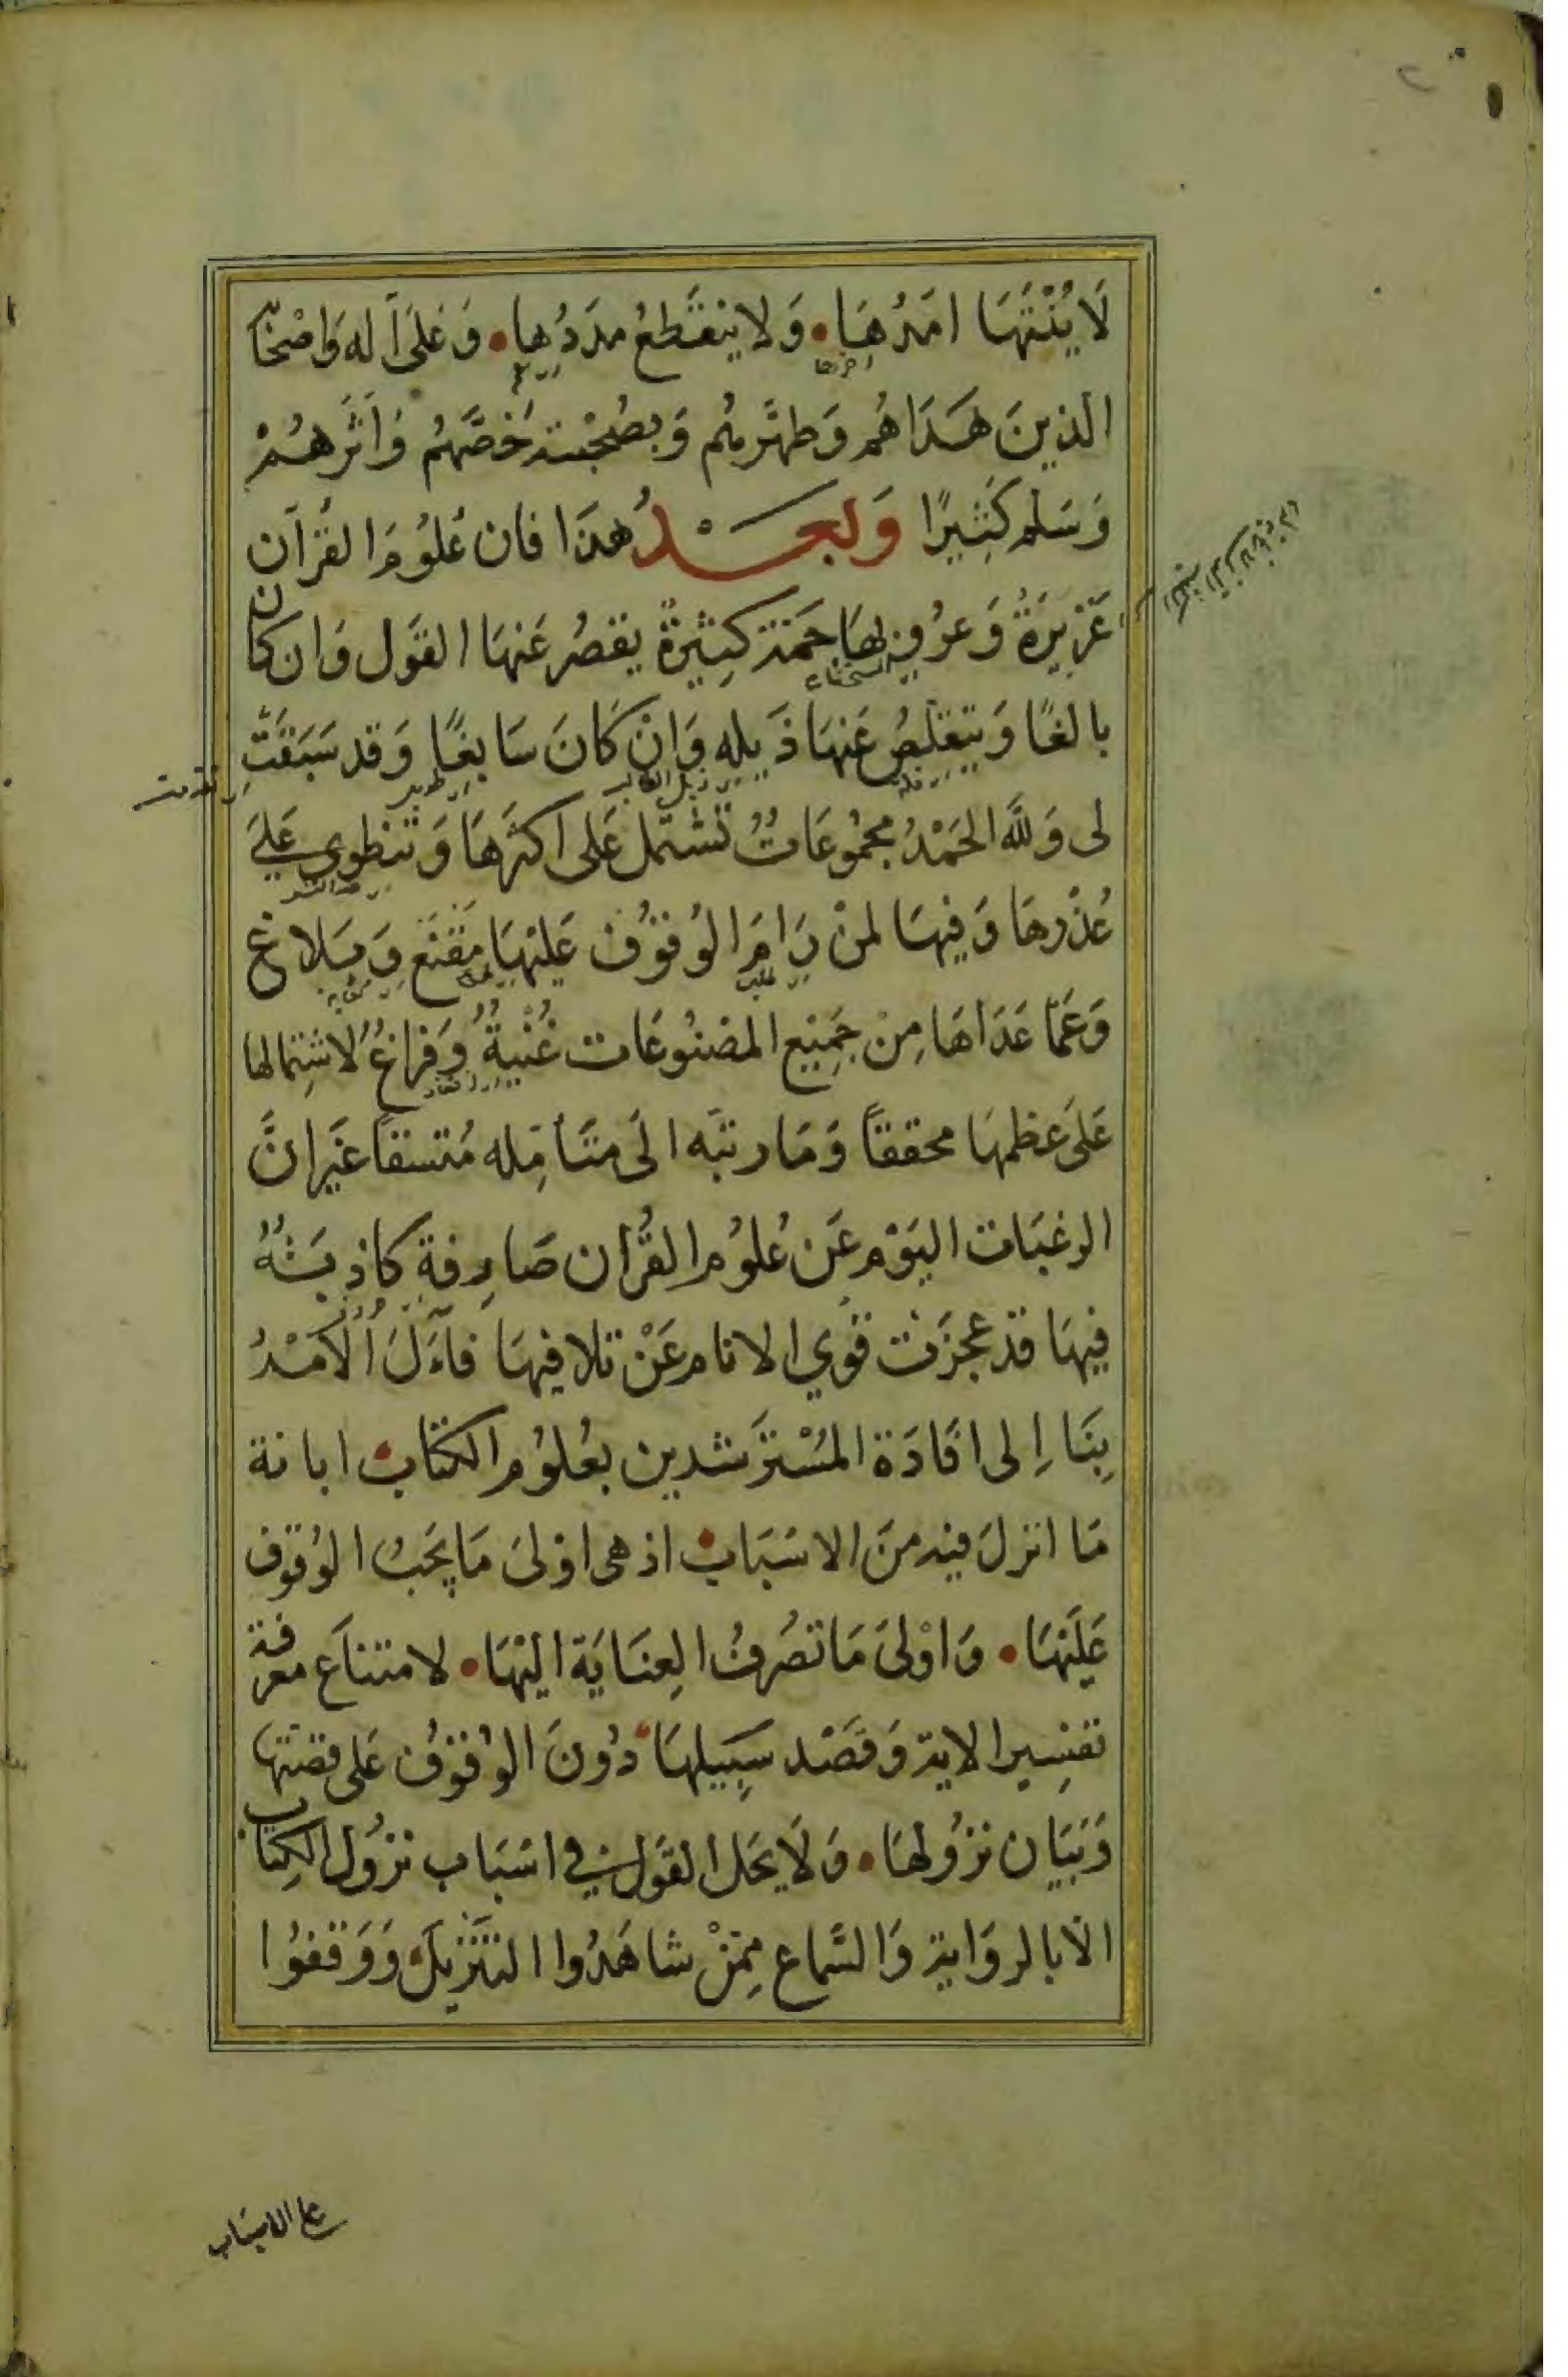 لَا يُنْتَهَا امَدُهَا • وَلا ينقَطعُ مدَدُها • وَعَلَى آله وَاصْحَابه
الذينَ هَدَاهُم وَطهَّرهُم وَبصُحْبته خَصَّهُم وَاَثَرهُمْ
وَسَلم كَثِيرًا وَبعَدُ هذَا فان عُلوُمَ القُرآن
غَزيرَةُ وَعرُوفهَا جَمَة كثِيرةُ يقصُر عَنهَا القَول وَان كانَ
بالغًا وَيتقلصُ عَنهَا ذَيله وَانْ كَانَ سَابغًا وَقد سَبَقَتِ
لى وَلله الحَمْدُ مجمُوعَاتُ تشتمل عَلى اكثرهَا وَتنطوى عَلىَ
غُدْرهَا وَفيهَا لمنْ رَامَ الوُقوُف عَليْهَا مَقْنَع وَبَلاغ
وَعَمّا عَدَاهَا مِنْ جَمِيْع المصْنوُعَات غُنْيةُ وَفرَاغُ لاشتِمالها
عَلىَ عظمهَا محققاً وَمَا رتبَه الَى متَأمّله مُتسقاً غَيَر انَّ
الرغبَات اليَوْم عَن عُلوُم القُرْان صَارِفة كاذبَةُ
فيهَا قدْ عجزَت قوَي الانام عَنْ تلافيهَا فآلَ الْأمْرُ
بِنَا إلى افَادَة المُسْترشدين بعُلوُم الكتاب • ابانة
مَا انزلَ فيه منَ الاسْبَاب • اذ هى اوْلىَ مَا يجَبُ الوُقوف
عَليْهَا • وَاوْلىَ مَا تصُرفُ العِنَايَة اليْهَا • لامتناَع معرفة
تفسِير الاية وَقصْد سَبيلهَا • دُونَ الوُقوُف عَلى قصتها
وَبَيَان نزوُلهَا • وَلَا يحَل القوَل فى اسْبَاب نزوُل الكِتاب
الّا بالروَاية وَالسَّماع مِمَّنْ شاهَدُوا التنْزيلَ وَوَقفوُا
على الاسبَاب